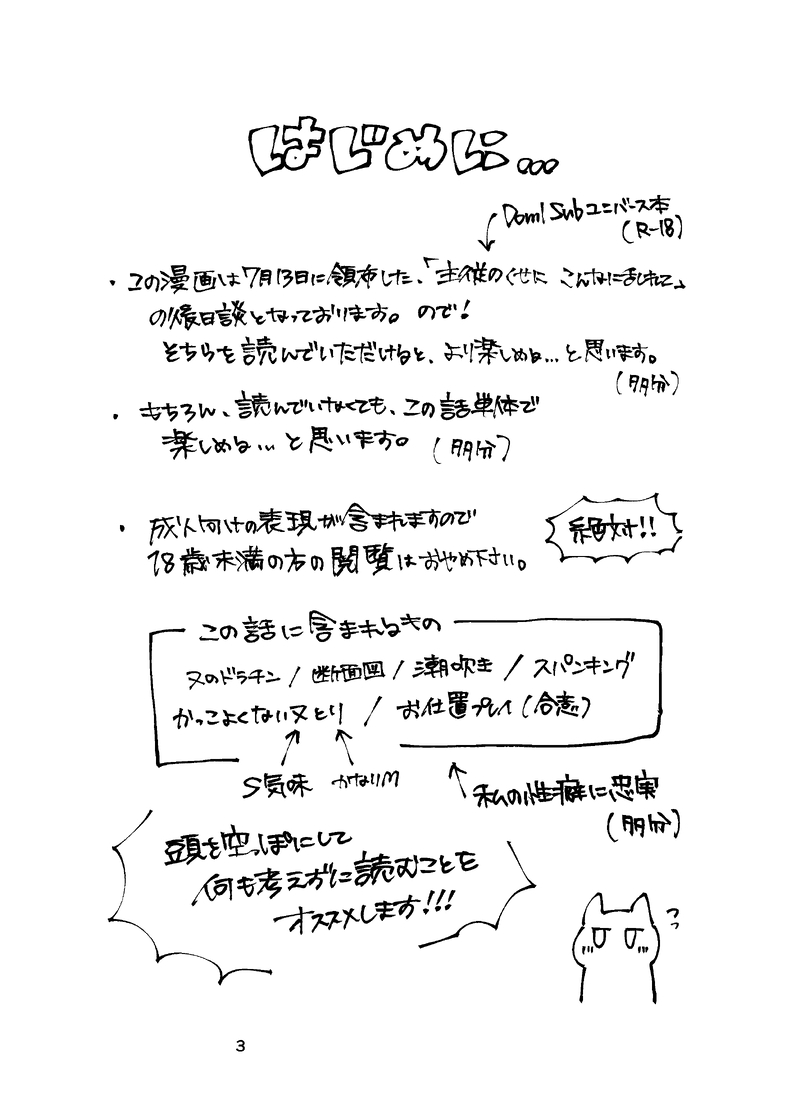 はじめに...
Dom/Subユニバース本
(R-18)
・この漫画は7月13日に頒布した、「主従のくせに こんなに乱れて」
の後日談となっております。ので!
そちらを読んでいただけると、より楽しめる...と思います。
(多分)
・もちろん、読んでいなくても、この話単体で
楽しめる...と思います。(多分)
・成人向けの表現が含まれますので
18歳未満の方の閲覧はおやめ下さい。
絶対!!
この話に含まれるもの
又のドラチン/断面図/潮吹き/スパンキング
かっこよくない又とり/お仕置プレイ(合意)
S気味 かなりM
私の性癖に忠実
(多分)
頭を空っぽにして
何も考えずに読むことを
オススメします!!!
3